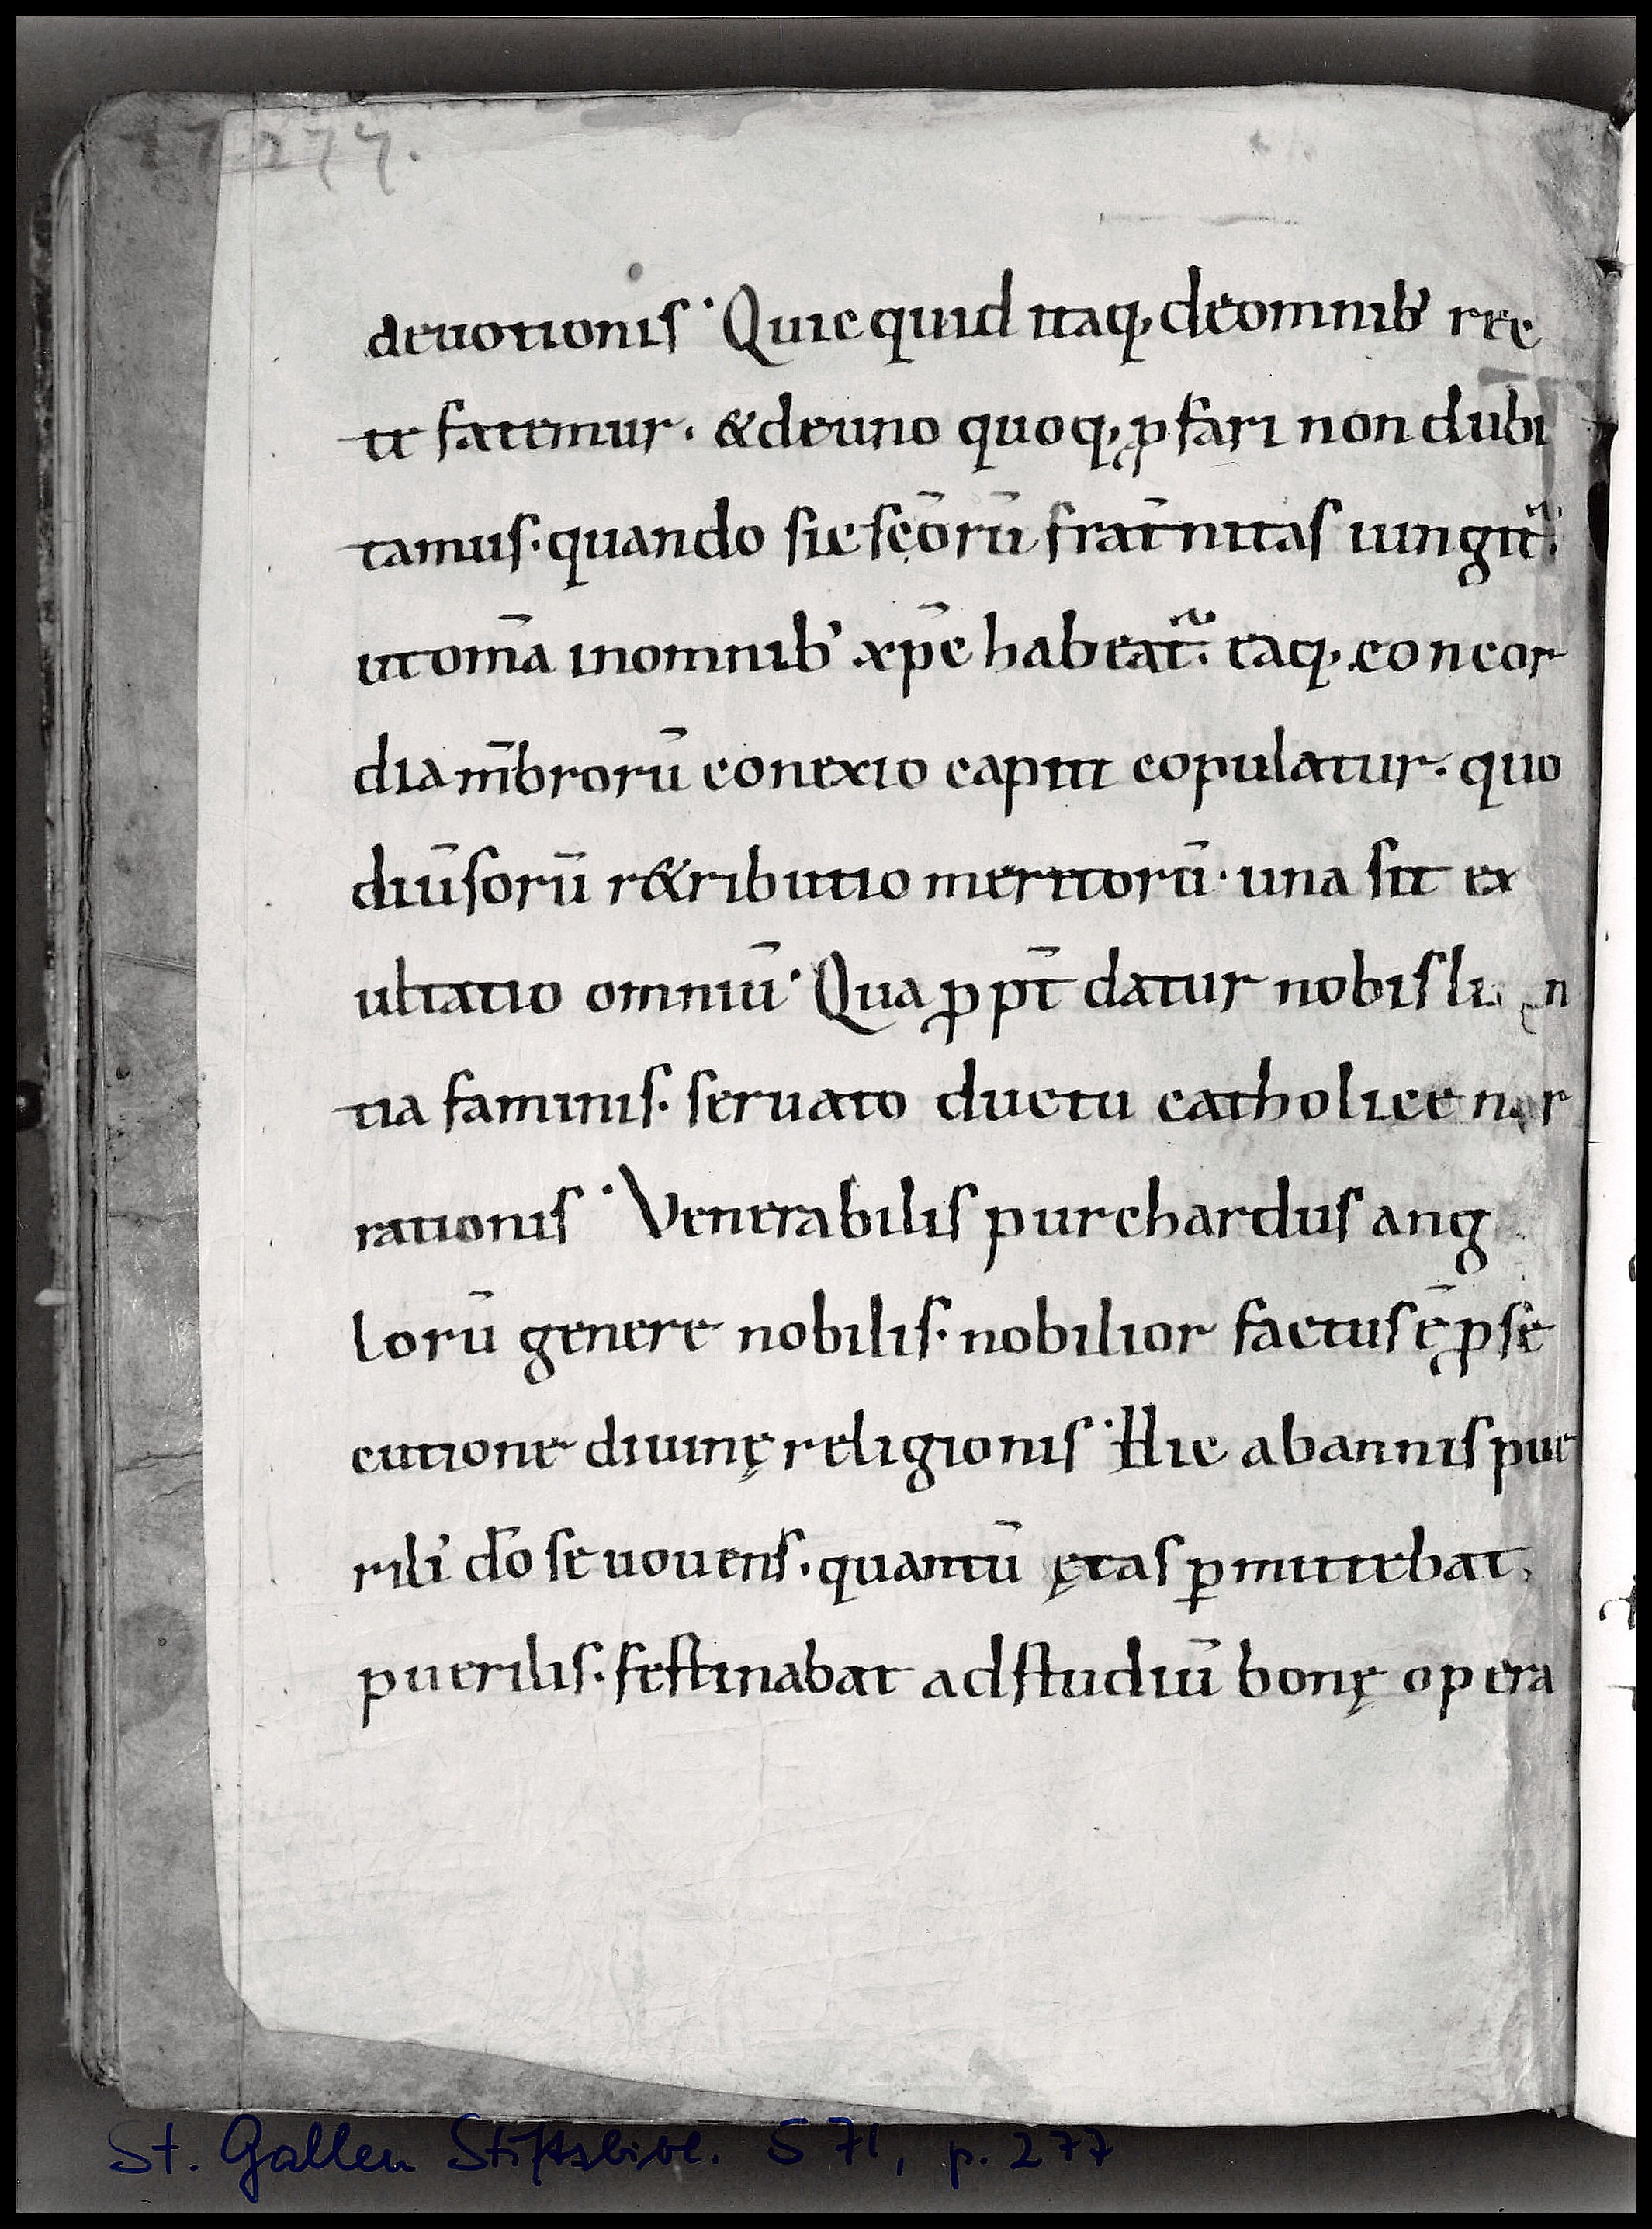 277.
deuotionis · Quicquid itaq; deomnib' rec
te fatemur · & deuno quoq; ꝓfari non dubi
tamus · quando sic scōrū frat̄nitas iungit̃ ·
utom̄a inomnib' xp̄c habeat̃ · eaq; concor
dia m̄brorū conexio capiti copulatur · quo
diūsorū r&ributio meritorū · una sit ex
ultatio omniū · Qua ꝓpt̄ datur nobis li n
tia faminis · seruato ductu catholice nar
rationis · Venerabilis purchardus ang
lorū genere nobilis · nobilior factus ē ꝓse
cutione diuinę religionis · Hic abannis pue
rili' dō se uouens · quantū ętas ꝑmittebat,
puerilis · festinabat adstudiū bonę opera
St. Gallen Stiftsbibl. 571, p. 277